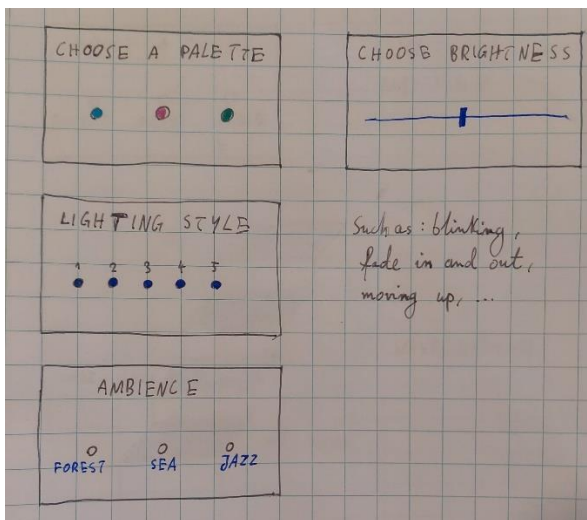 CHOOSE A PALETTE
CHOOSE BRIGHTNESS
LIGHTING STYLE
1 2 3 4 5
Such as: blinking,
fade in and out,
moving up, ...
AMBIENCE
FOREST SEA JAZZ